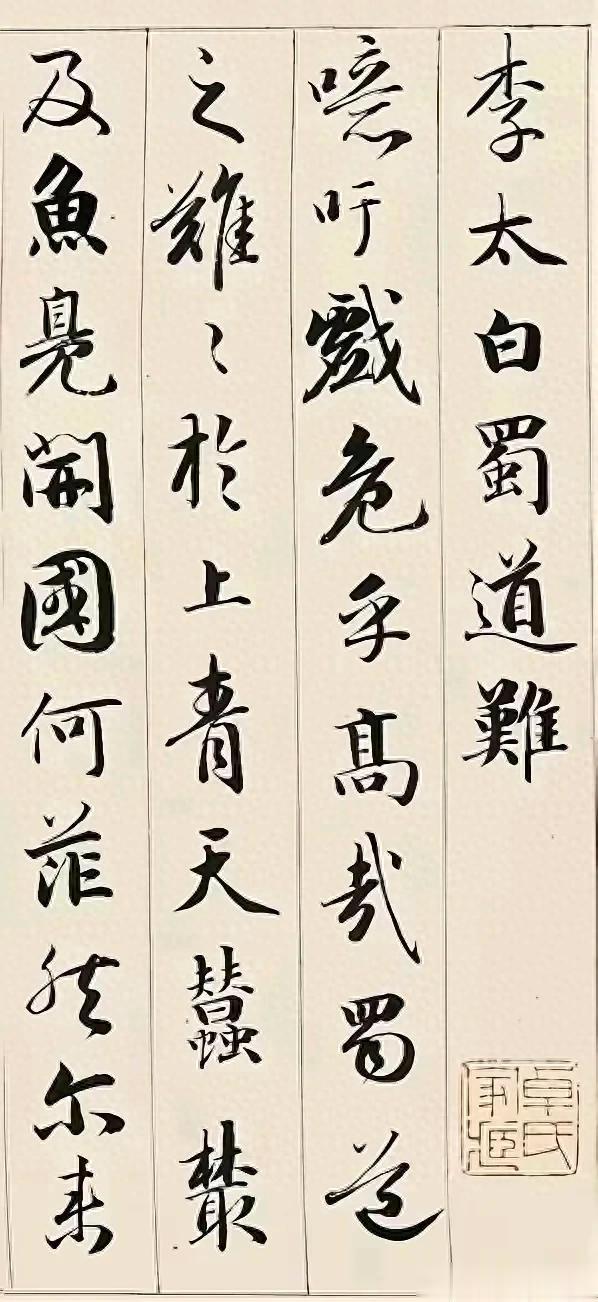 李太白蜀道難
噫吁戲危乎高哉蜀道
之難〻於上青天蠶叢
及魚鳧開國何茫然尔来
卓氏家藏